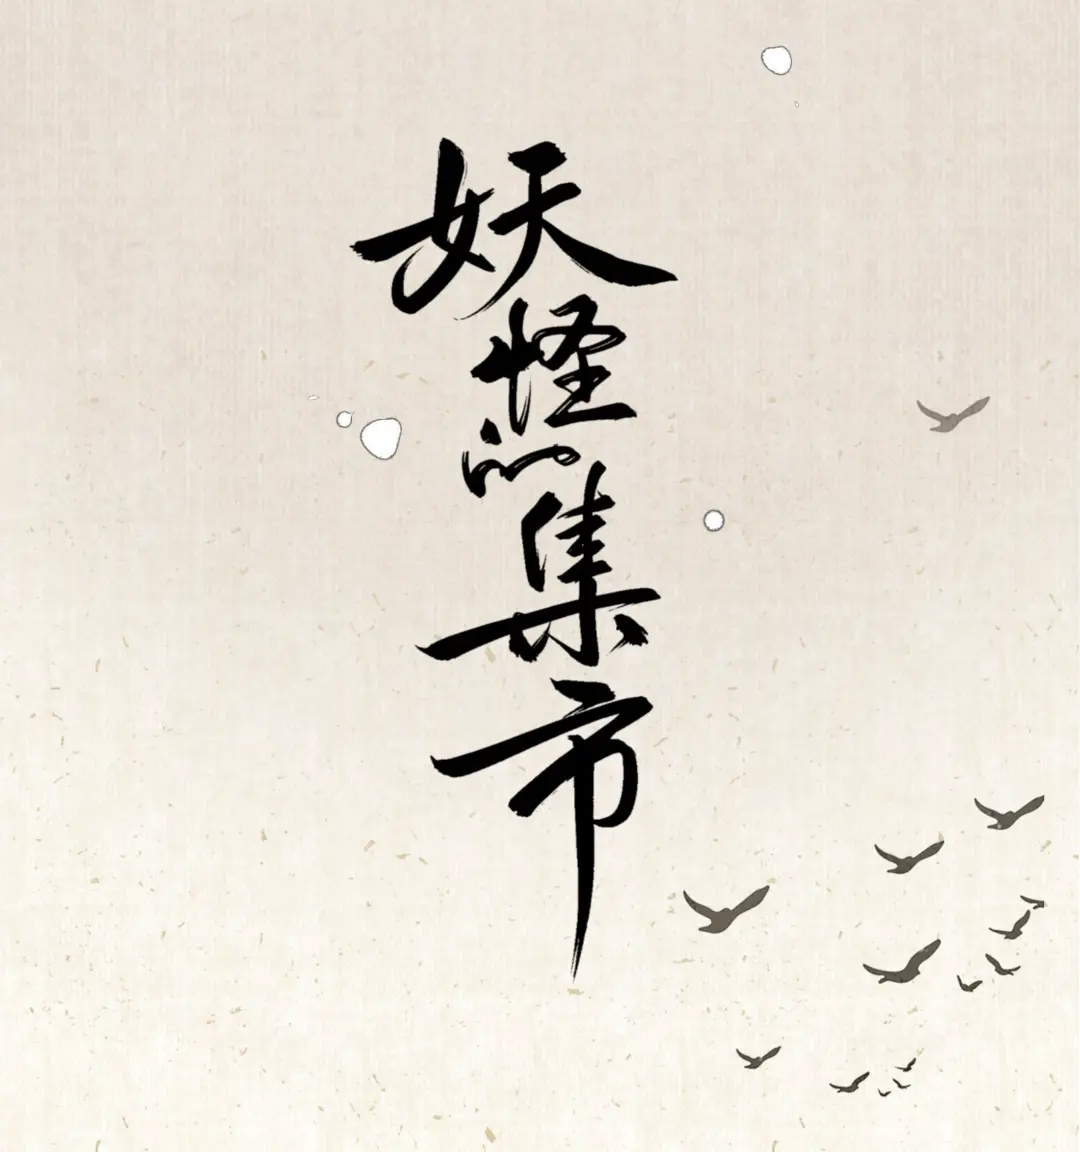 妖怪的集市